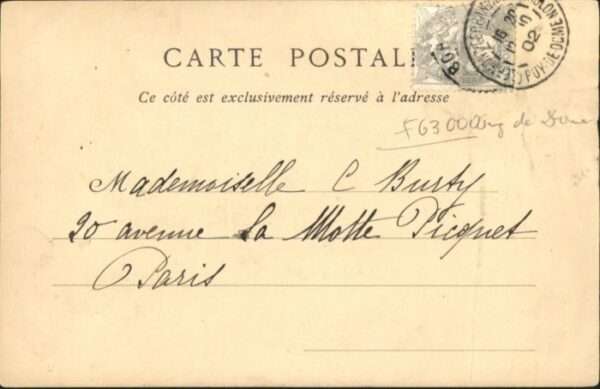 CARTE POSTALE
Ce côté est exclusivement réservé à l'adresse
F63000 Puy de Dome
PUY-DE-DOME
16 20
02
Mademoiselle C Burty
20 avenue La Motte Picquet
Paris